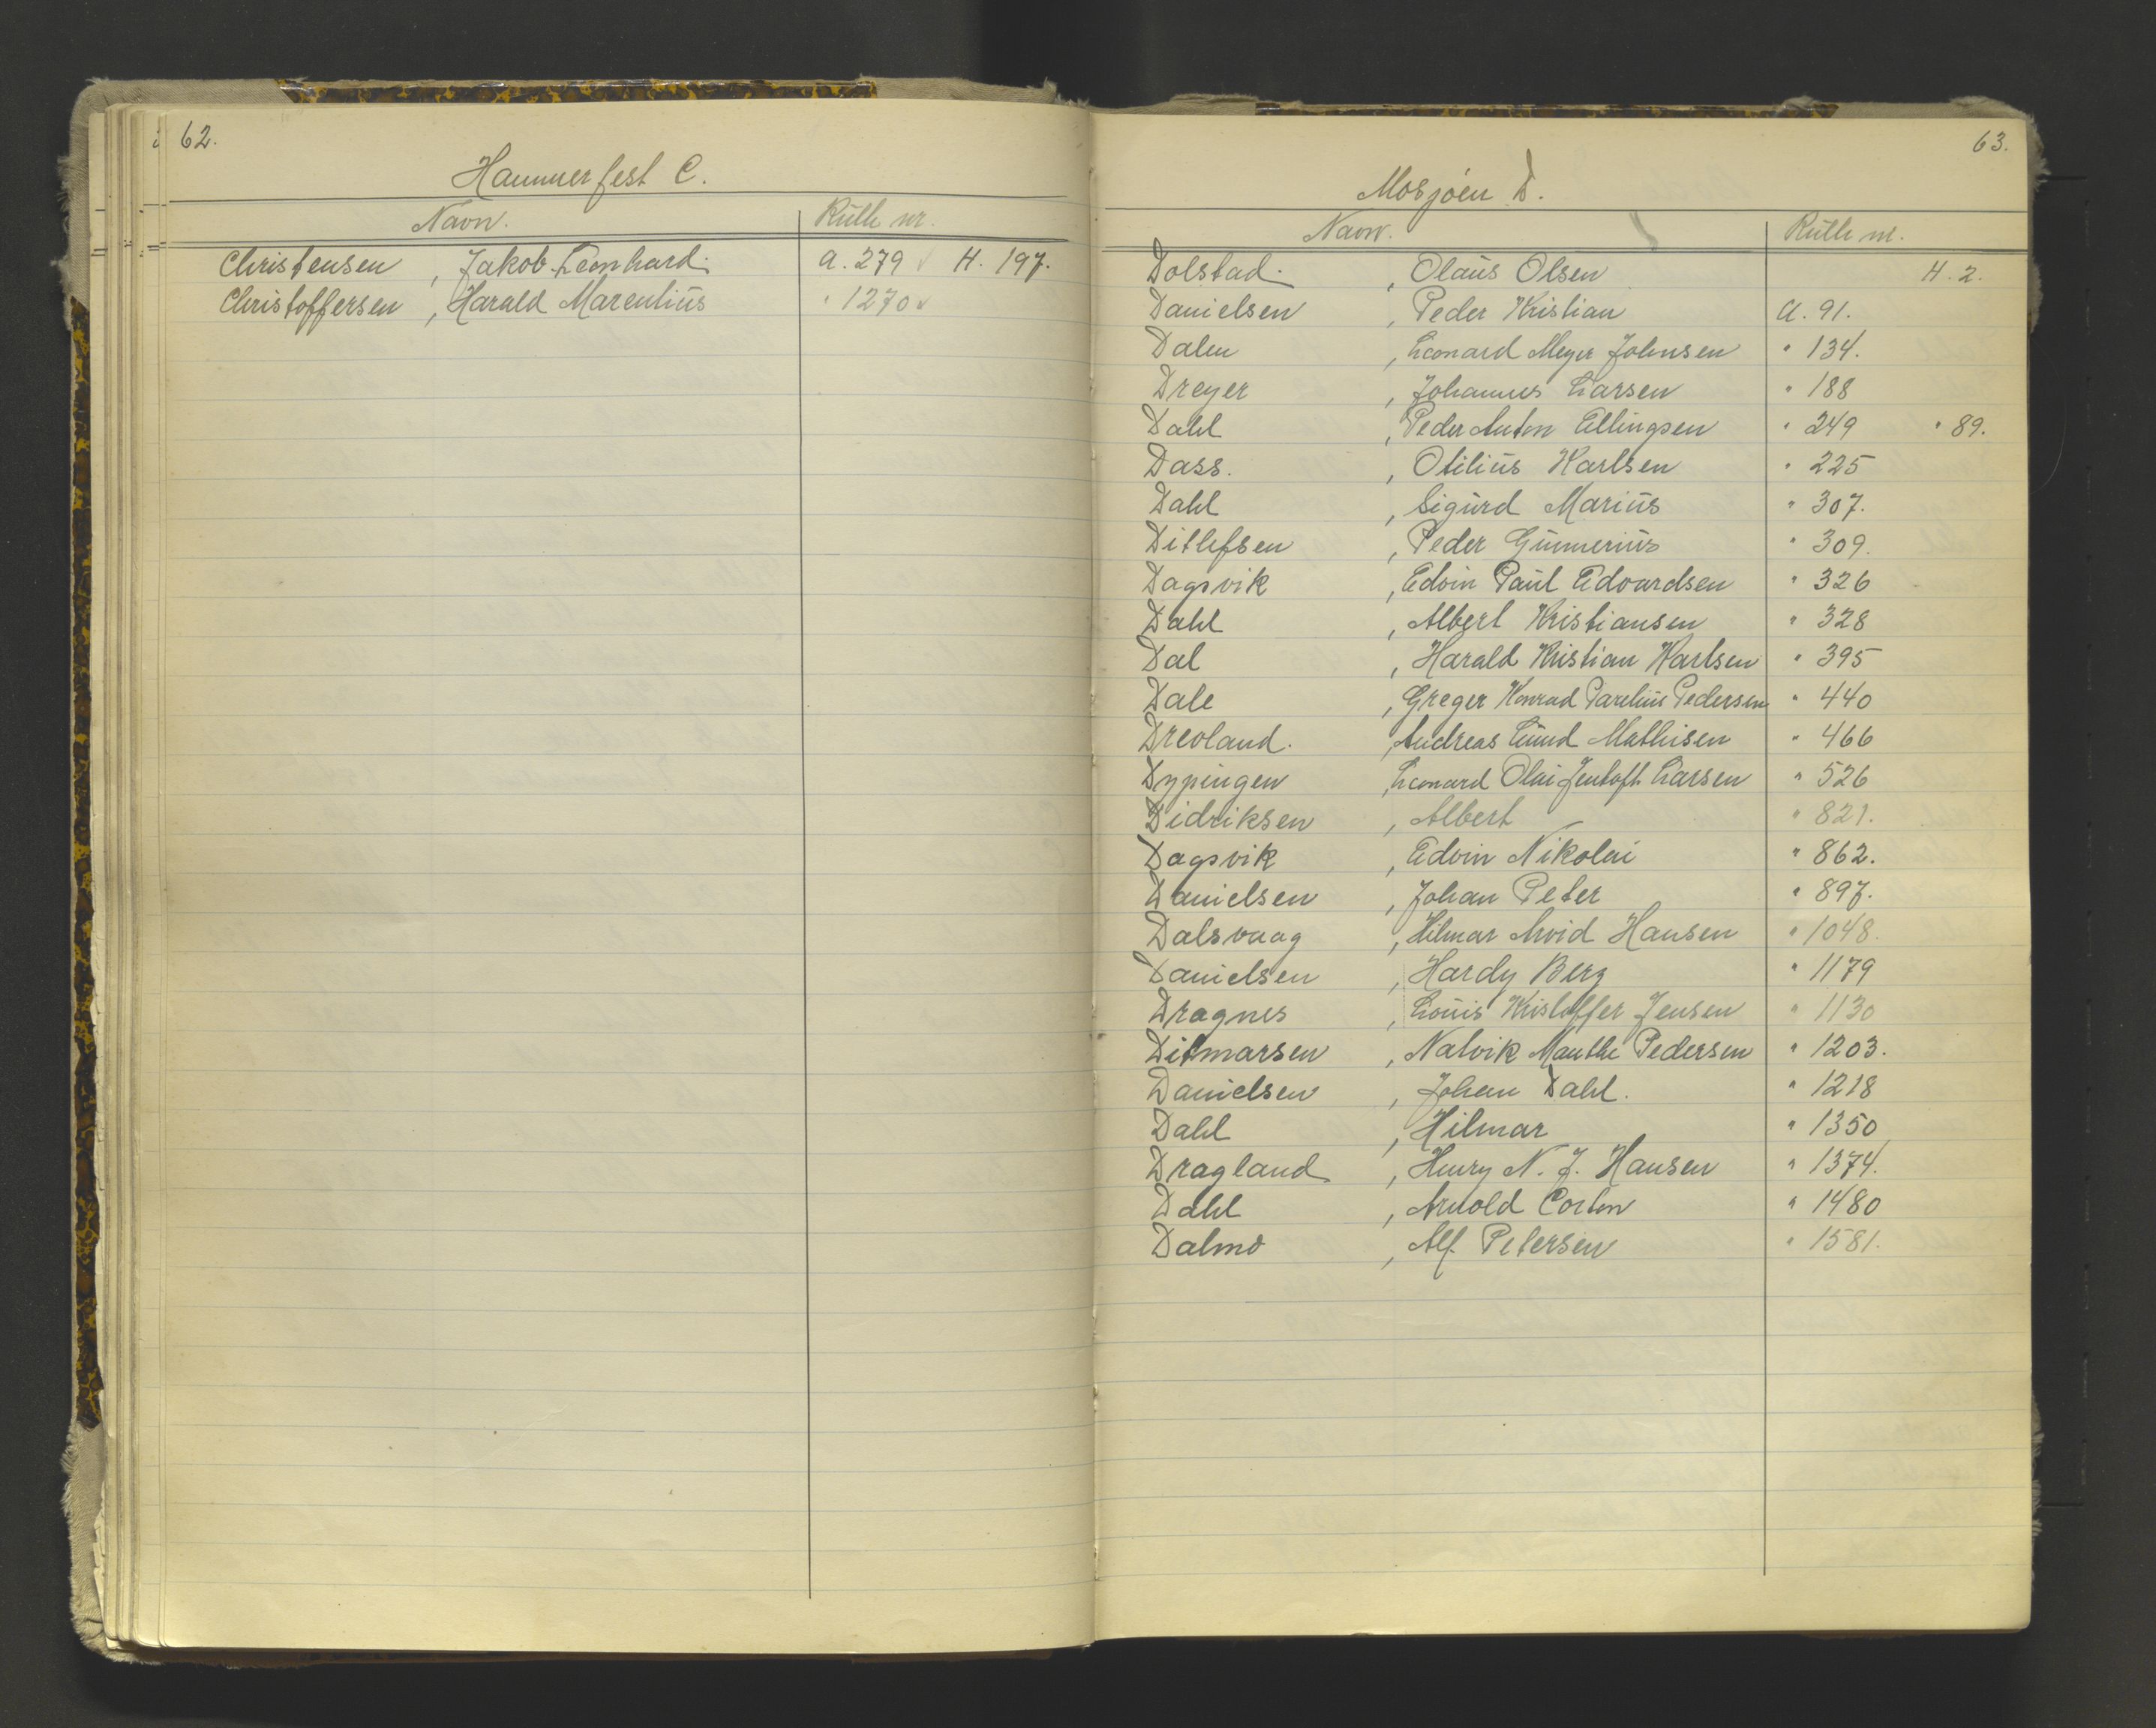 62.
Hammerfest C.
Navn. Rulle nr.
Christensen, Jakob Leonhard. A. 279 ✓ H. 197.
Christoffersen, Harald Marentius " 1270 ✓
63.
Mosjøen D.
Navn. Rulle nr.
Dolstad. , Olaus Olsen H. 2.
Danielsen , Peder Kristian A. 91.
Dalen , Leonard Meyer Johnsen " 134.
Dreyer , Johannes Larsen " 188
Dahl , Peder Anton Ellingsen " 249 " 89.
Dass. , Otilius Karlsen " 225
Dahl , Sigurd Marius " 307.
Ditlefsen , Peder Gunnerius " 309.
Dagsvik , Edvin Paul Edvardsen " 326
Dahl , Albert Kristiansen " 328
Dal , Harald Kristian Karlsen " 395
Dale , Greger Konrad Parelius Pedersen " 440
Drevland. , Andreas Lund Mathisen " 466
Dypingen , Leonard Olai Jentoft Larsen " 526
Didriksen , Albert " 821.
Dagsvik , Edvin Nikolai " 862.
Danielsen , Johan Peter " 897.
Dalsvaag , Hilmar Arvid Hansen " 1048.
Danielsen , Hardy Berg " 1179
Dragnes , Louis Kristoffer Jensen " 1130
Ditmarsen , Nalvik Manthe Pedersen " 1203.
Danielsen , Johan Dahl. " 1218
Dahl , Hilmar " 1350
Dragland , Henry N. J. Hansen " 1374.
Dahl , Arnold Corton " 1480
Dalmo , Alf Petersen " 1581.